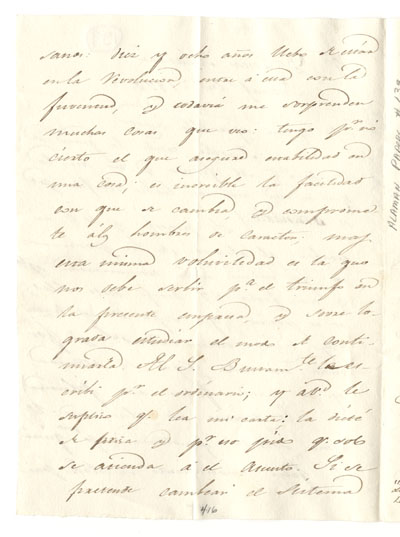 sanos: diez y ocho años llebo de edad
en la revolucion, entre á ella con la
juventud, y todavia me sorprenden
muchas cosas que veo: tengo pr. no
cierto el que asegura estabilidad en
una cosa; es increible la facilidad
con que se cambia y compromete
te á los hombres de caracter, mas
esta misma volubilidad es la que
nos debe servir pa. el triunfo en
la presente empresa, y sobre lo
estudiar el modo de conti-
nuarla. Al S. Bustamte. le es-
cribi pr. el ordinario; y á Vd. le
suplico qe. lea mi carta: la
se y pr. no qe. solo
se atienda a el Asunto. Si se
pretende cambiar el Sistema
4/16
ALAMAN PAPERS # 139